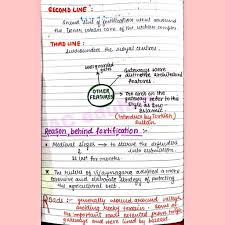 SECOND LINE :
Second line of fortification went around
the inner urban core of the urban complex
THIRD LINE :
surrounded the royal centre.
well guarded
gates
Gateways were
distinctive architectural
features.
OTHER
FEATURES
The arch on the
gateway refer to this
style as Indo
Islamic
(Introduced by Turkish
Sultan
Reason behind fortification :-
Medieval sieges → to starve the defenders
into submission.
last for months
The rulers of vijaynagara adopted a more
expensive and elaborate strategy of protecting
the agricultural belt.
Roads : generally wound around valleys
avoiding rocky terrain. Some of
the important roads extended from temple
gateways and were lined by bazaars